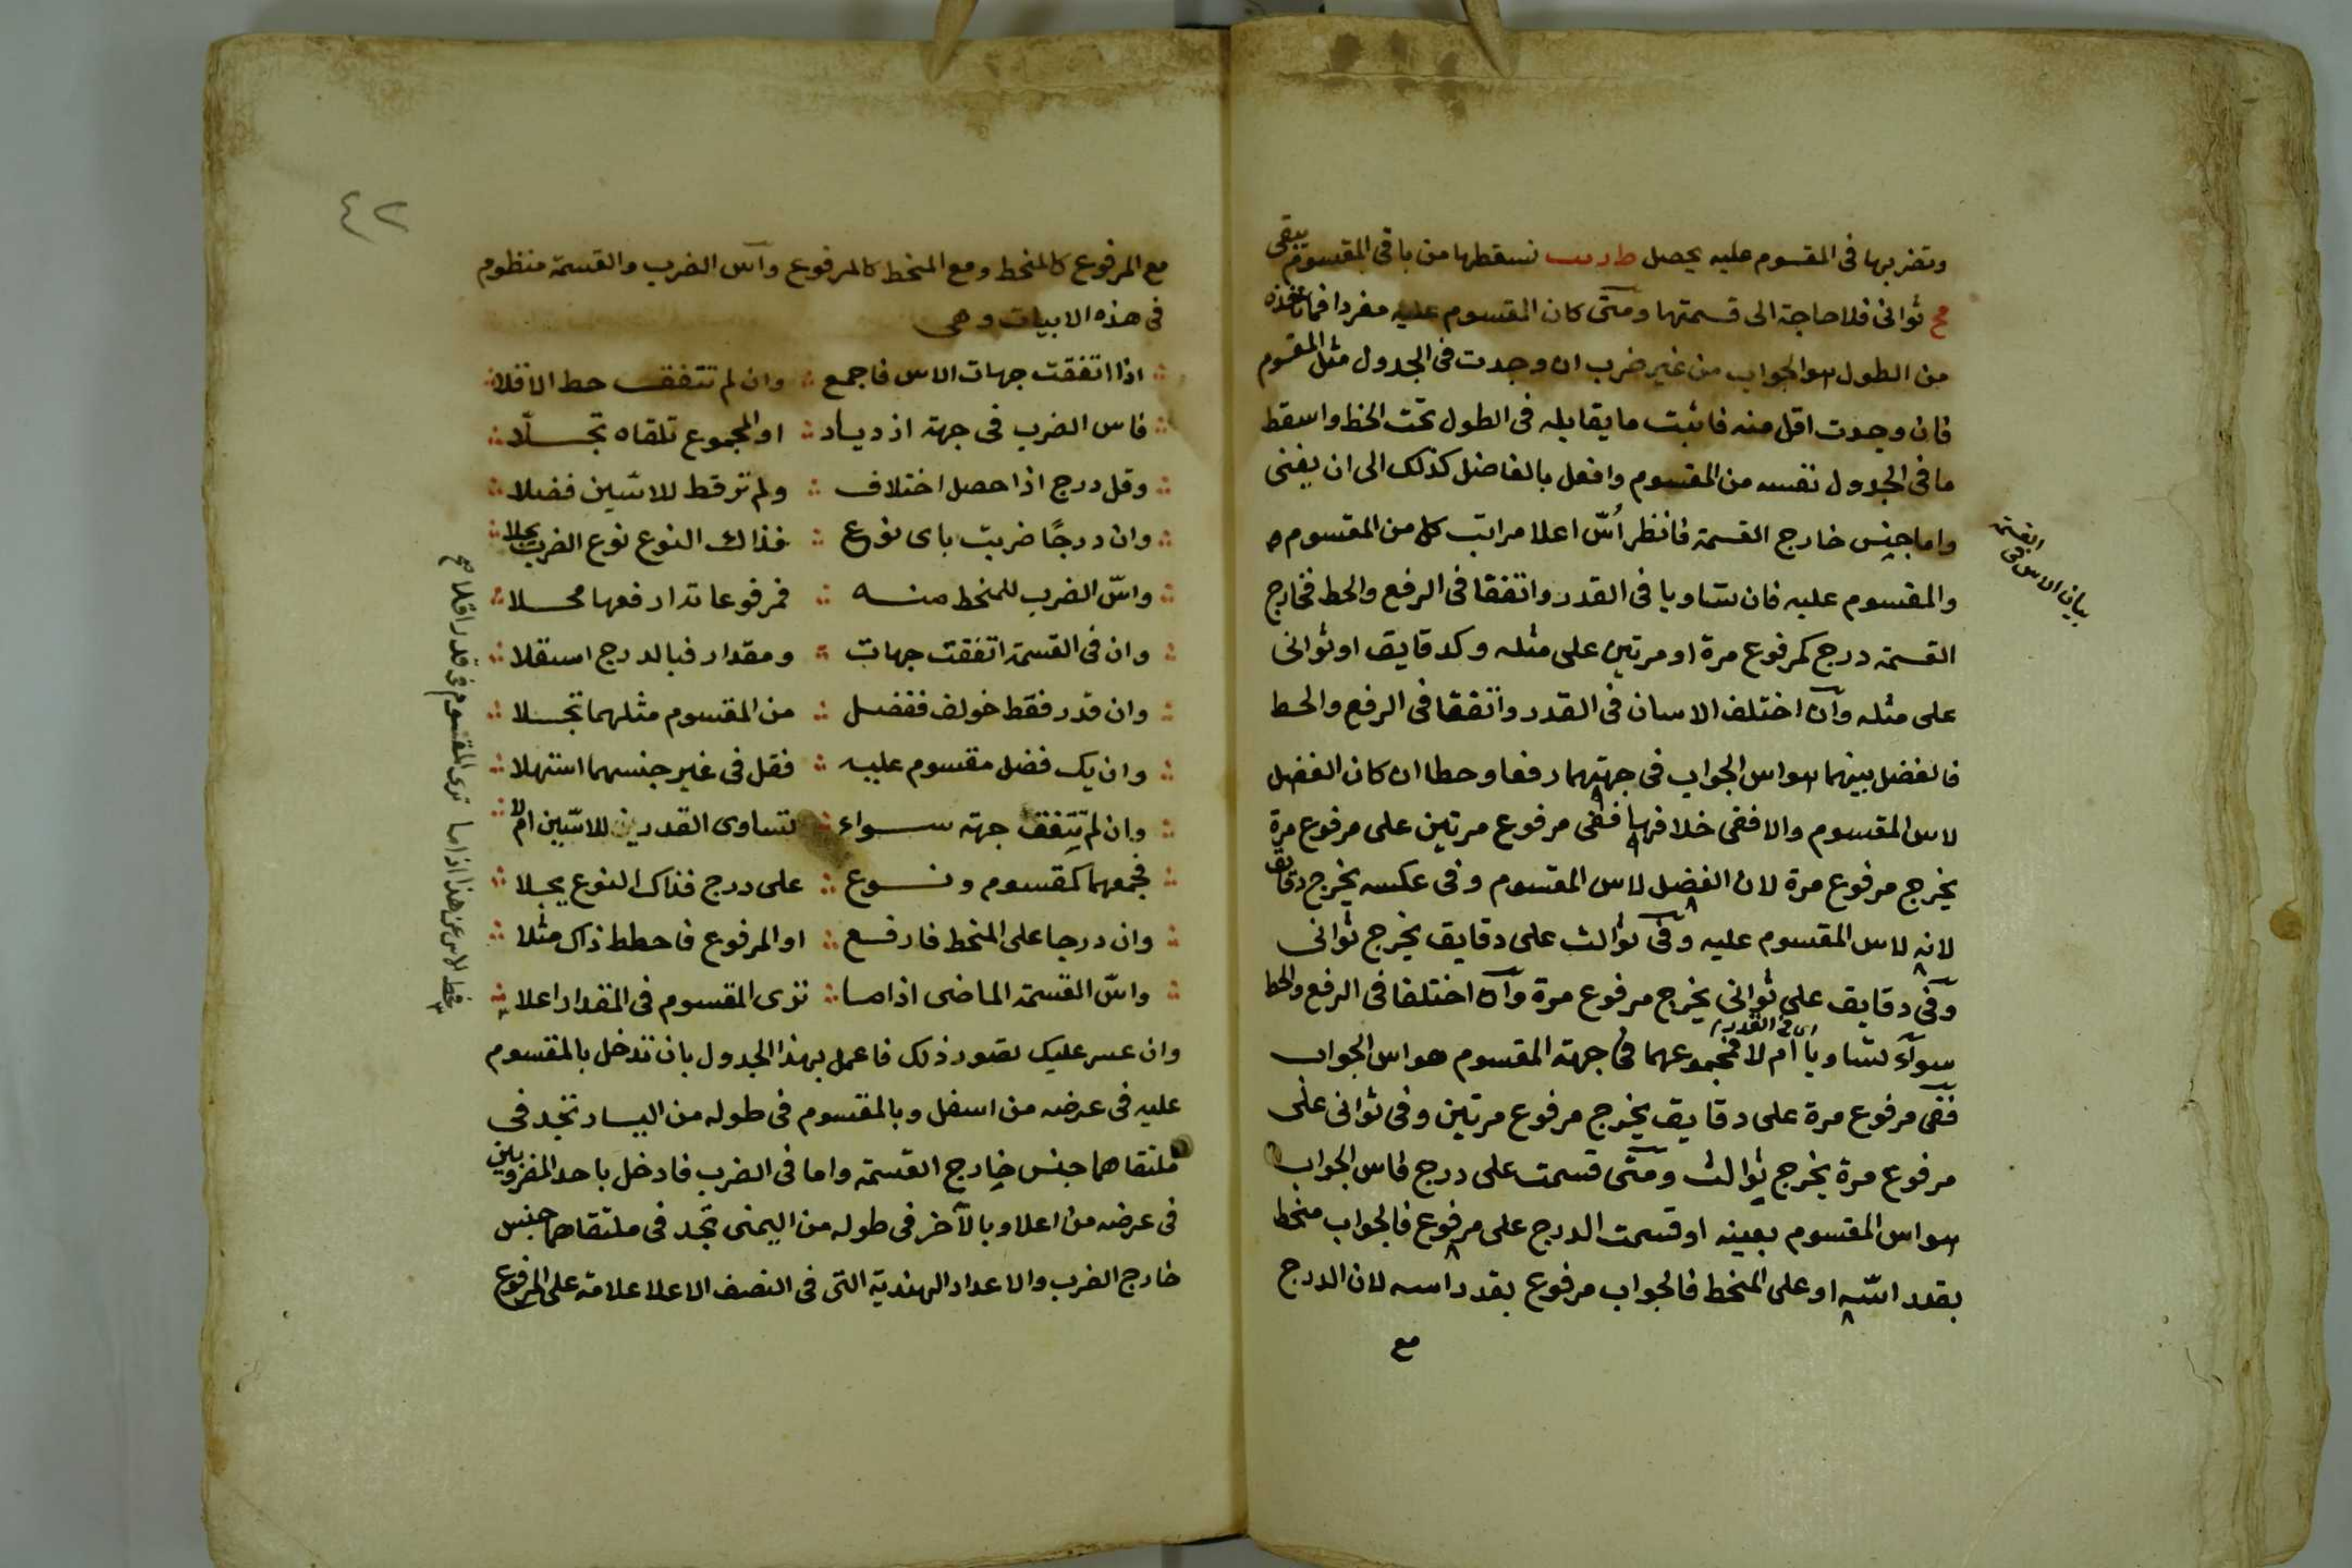 وتضربها فى المقسوم عليه يحصل نسقطها من باقى المقسوم يبقى
مح ثوانى فلا حاجة الى قسمتها ومتى كان المقسوم عليه مفردا فما تاخذه
من الطول هو الجواب من غير ضرب ان وجدت فى الجدول مثل المقسوم
فان وجدت اقل منه فاثبت ما يقابله فى الطول تحت الخط واسقط
ما فى الجدول نفسه من المقسوم وافعل بالفاضل كذلك الى ان يفنى
واما جنس خارج القسمة فانظر أسّ اعلا مراتب كل من المقسوم
والمقسوم عليه فان تساويا فى القدر واتفقا فى الرفع والحط فخارج
القسمة درج كمرفوع مرة او مرتين على مثله وكدقايق او ثوانى
على مثله وان اختلف الاسان فى القدر واتفقا فى الرفع والحط
فالفضل بينهما هو اس الجواب فى جهتهما رفعا وحطا ان كان الفضل
لاس المقسوم والا ففى خلافها ففى مرفوع مرتين على مرفوع مرة
يخرج مرفوع مرة لان الفضل لاس المقسوم وفى عكسه يخرج دقايق
لانه لاس المقسوم عليه وفى ثوالث على دقايق يخرج ثوانى
وفى دقايق على ثوانى يخرج مرفوع مرة وان اختلفا فى الرفع والحط
اى فى القدر
سوآء تساويا ام لا فمجموعهما فى جهة المقسوم هو اس الجواب
ففى مرفوع مرة على دقايق يخرج مرفوع مرتين وفى ثوانى على
مرفوع مرة يخرج ثوالث ومتى قسمت على درج فاس الجواب
هو اس المقسوم بعينه او قسمت الدرج على مرفوع فالجواب منحط
بقدر اسّه او على المنحط فالجواب مرفوع بقدر اسه لان الدرج
مع
بيان الاس فى القسمة
٤٢
مع المرفوع كالمنحط ومع المنحط كالمرفوع وآس الضرب والقسمة منظوم
فى هذه الابيات وهى
اذا اتفقت جهات الاس فاجمع ∴ وان لم تتفق حط الاقلا
فاس الضرب فى جهة ازدياد ∴ او المجموع تلقاه تجلّا
وقل درج اذا حصل اختلاف ∴ ولم تر قط للاسّين فضلا
وان درجًا ضربت باى نوع ∴ فذاك النوع نوع الضرب يجلا
واسّ الضرب للمنحط منه ∴ فمرفوعا تدا رفعها محلا
وان فى القسمة اتفقت جهات ∴ ومقدار فبالدرج استقلا
وان قدر فقط خولف ففضل ∴ من المقسوم مثلهما تجلا
وان يك فضل مقسوم عليه ∴ فقل فى غير جنسهما استهلا
وان لم تتفق جهة سواء ∴ تساوى القدرين للاسّين ام لا
فجمعهما كمقسوم ونوع ∴ على درج فذاك النوع يجلا
وان درجا على المنحط فارفع ∴ او المرفوع فاحطط ذاك مثلا
واسّ القسمة الماضى اذا ما ∴ ترى المقسوم فى المقدار اعلا
وان عسر عليك تصور ذلك فاعمل بهذا الجدول بان تدخل بالمقسوم
عليه فى عرضه من اسفل وبالمقسوم فى طوله من اليسار تجد فى
ملتقاهما جنس خارج القسمة واما فى الضرب فادخل باحد المضروبين
فى عرضه من اعلا وبالآخر فى طوله من اليمنى تجد فى ملتقاهما جنس
خارج الضرب والاعداد الهندية التى فى النصف الاعلا علامة على المرفوع
فحط الاس عن هذا اذا ما ترى المقسوم فى قدر اقلا صح